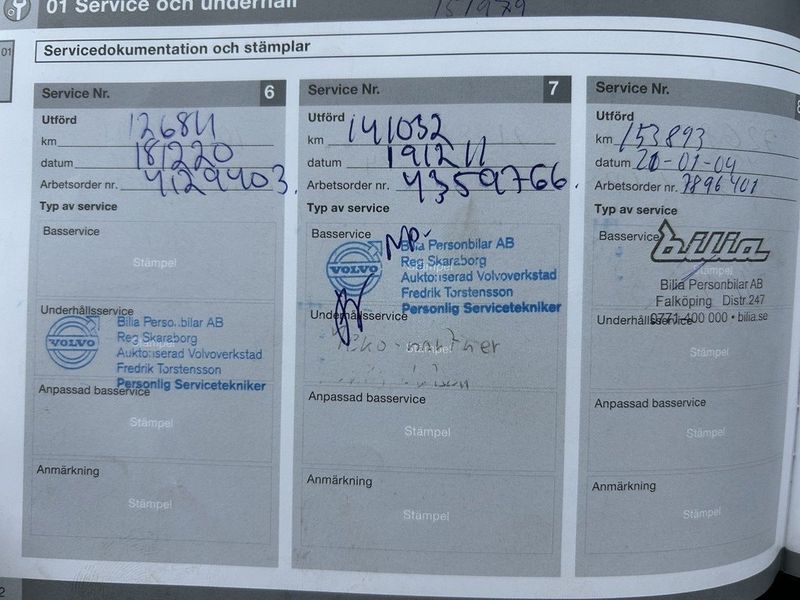 01 Service och underhåll
151979
01
Servicedokumentation och stämplar
Service Nr. 6
Utförd
km 126811
datum 181220
Arbetsorder nr. 4129403.
Typ av service
Basservice
Stämpel
Underhållsservice
VOLVO
Bilia Perso..bilar AB
Reg Skaraborg
Auktoriserad Volvoverkstad
Fredrik Torstensson
Personlig Servicetekniker
Anpassad basservice
Stämpel
Anmärkning
Stämpel
Service Nr. 7
Utförd
km 141032
datum 191211
Arbetsorder nr. 4359766.
Typ av service
Basservice
VOLVO
Bilia Personbilar AB
Reg Skaraborg
Auktoriserad Volvoverkstad
Fredrik Torstensson
Personlig Servicetekniker
Underhållsservice
Stämpel
Anpassad basservice
Stämpel
Anmärkning
Stämpel
Service Nr.
Utförd
km 153893
datum 21-01-04
Arbetsorder nr. 7896401
Typ av service
Basservice
bilia
Stämpel
Bilia Personbilar AB
Falköping Distr.247
0771-400 000 • bilia.se
Underhållsservice
Stämpel
Anpassad basservice
Stämpel
Anmärkning
Stämpel